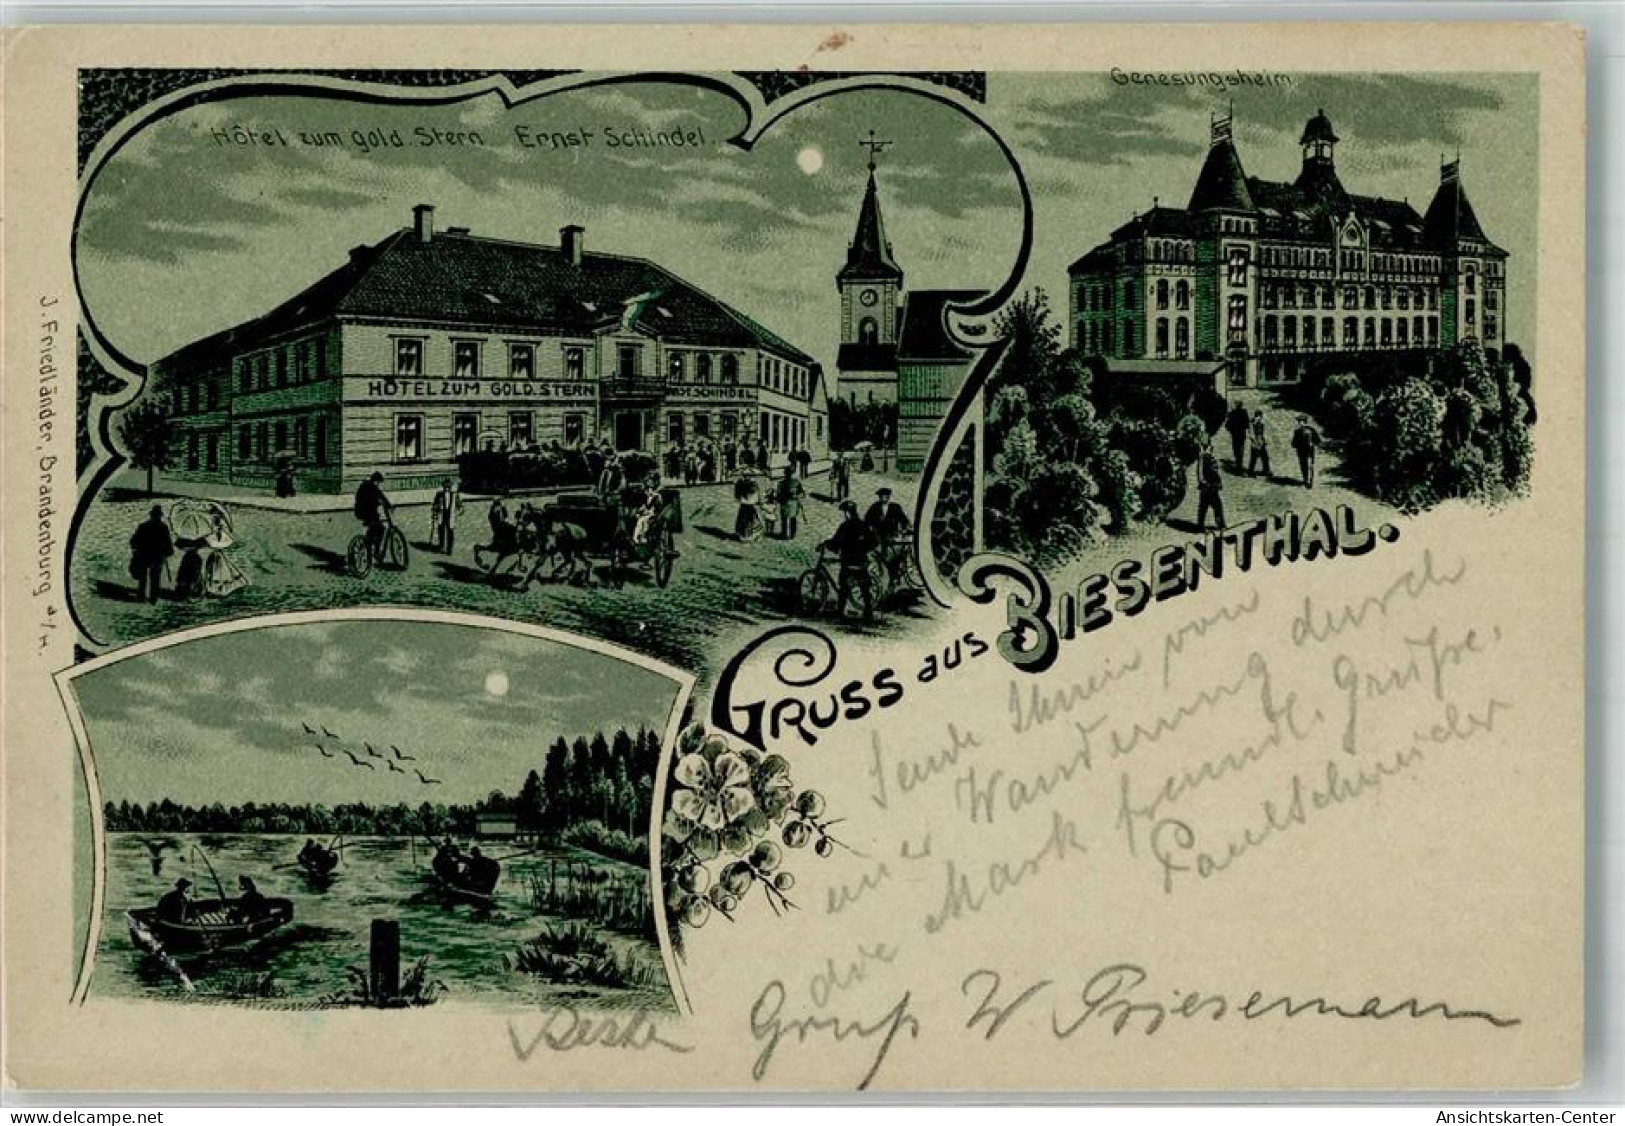 Hôtel zum gold. Stern Ernst Schindel.
Genesungsheim
HÔTEL ZUM GOLD. STERN
ERNST SCHINDEL
J. Friedländer, Brandenburg a/H.
GRUSS aus BIESENTHAL.
Sende Ihnen von
einer Wanderung durch
die Mark freundl. Grüße.
Paul Schneider
Besten Gruß W Priesemann
delcampe.net
Ansichtskarten-Center